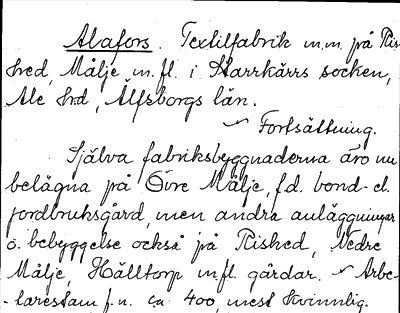 Alafors. Textilfabrik m.m. på Ris-
hed, Målje m.fl. i Starrkärrs socken,
Ale hrd, Älfsborgs län.
~ Fortsättning.
Själva fabriksbyggnaderna äro nu
belägna på Övre Målje, f.d. bond- el.
jordbruksgård, men andra anläggningar
o. bebyggelse också på Rished, Nedre
Målje, Hålltorp m.fl. gårdar. ~ Arbe-
-tarestam f.n. ca 400, mest kvinnlig.